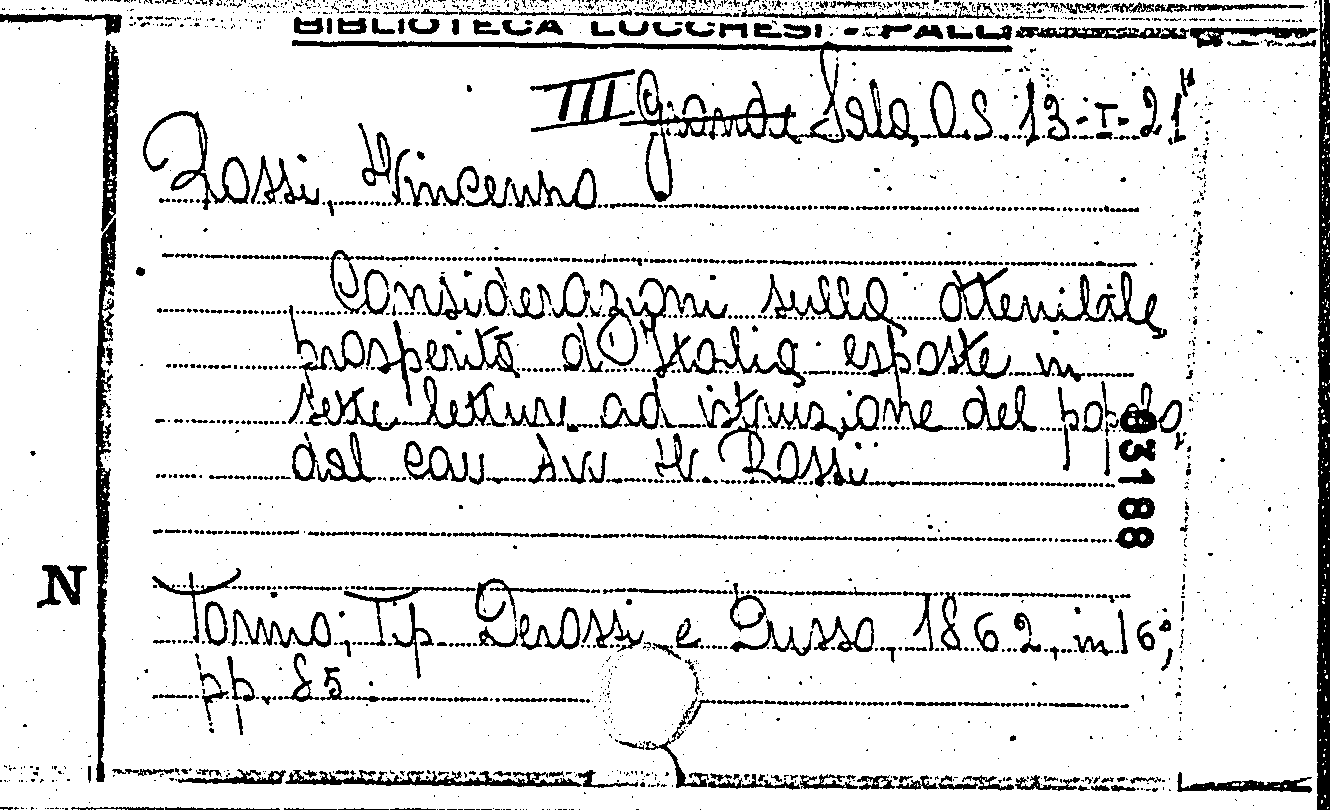 BIBLIOTECA LUCCHESI - PALLI
III Grande Sala O.S. 13-I-21
Rossi, Vincenzo
Considerazioni sulla ottenibile
prosperità d'Italia esposte in
sette letture ad istruzione del popolo,
dal cav. Avv. V. Rossi
83188
N
Torino, Tip. Derossi e Dusso, 1862, in 16°,
pp. 85.